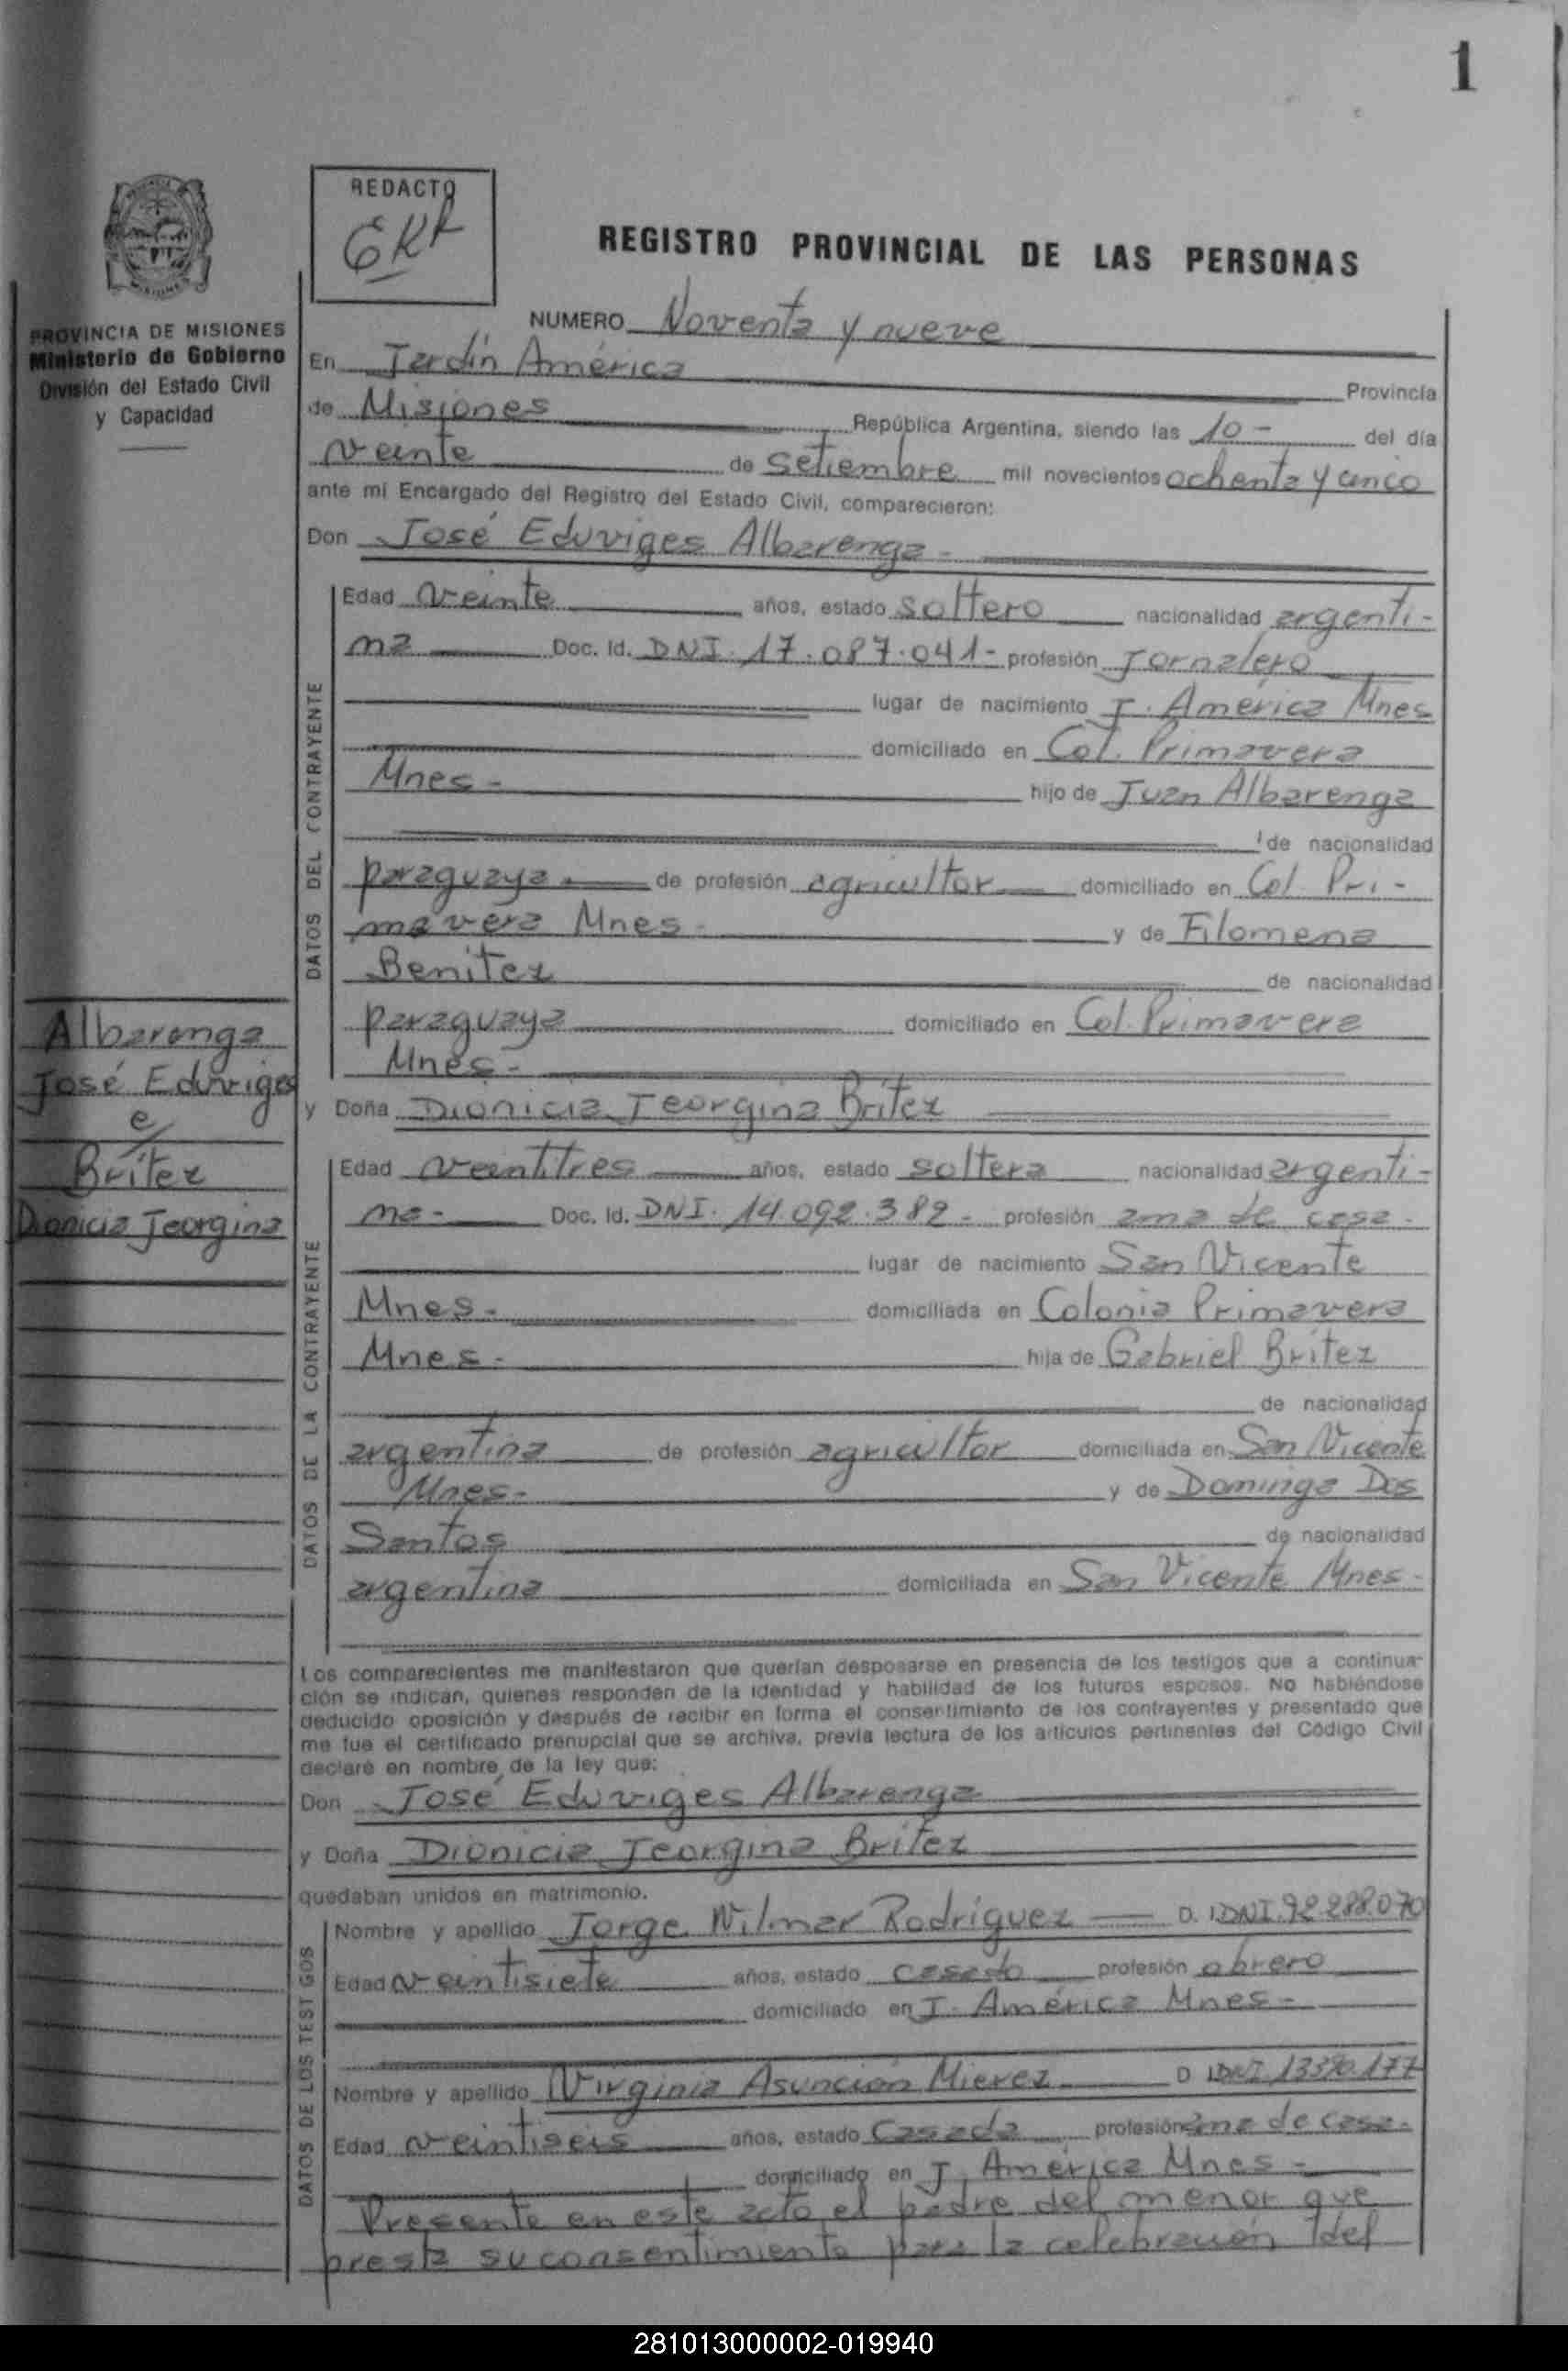 1
REDACTO
EKR
REGISTRO PROVINCIAL DE LAS PERSONAS
PROVINCIA DE MISIONES
Ministerio de Gobierno
División del Estado Civil
y Capacidad
NUMERO Noventa y nueve
En Jardín América Provincia
de Misiones República Argentina, siendo las 10 - del día
veinte de setiembre mil novecientos ochenta y cinco
ante mí Encargado del Registro del Estado Civil, comparecieron:
Don José Eduviges Albarenga -
DATOS DEL CONTRAYENTE
Edad veinte años, estado soltero nacionalidad argenti-
na Doc. Id. DNI. 17.087.041- profesión Jornalero
lugar de nacimiento J. América Mnes
domiciliado en Col. Primavera
Mnes - hijo de Juan Albarenga
de nacionalidad
paraguaya de profesión agricultor domiciliado en Col. Pri-
mavera Mnes - y de Filomena
Benitez de nacionalidad
paraguaya domiciliado en Col. Primavera
Mnes -
Albarenga
José Eduviges
e/
Britez
Dionicia Jeorgina
y Doña Dionicia Jeorgina Britez
DATOS DE LA CONTRAYENTE
Edad veintitres años, estado soltera nacionalidad argenti-
na - Doc. Id. DNI. 14.092.389 - profesión ama de casa -
lugar de nacimiento San Vicente
Mnes - domiciliada en Colonia Primavera
Mnes - hija de Gabriel Britez
de nacionalidad
argentina de profesión agricultor domiciliada en San Vicente
Mnes - y de Dominga Dos
Santos de nacionalidad
argentina domiciliada en San Vicente Mnes -
Los comparecientes me manifestaron que querían desposarse en presencia de los testigos que a continua-
ción se indican, quienes responden de la identidad y habilidad de los futuros esposos. No habiéndose
deducido oposición y después de recibir en forma el consentimiento de los contrayentes y presentado que
me fue el certificado prenupcial que se archiva, previa lectura de los artículos pertinentes del Código Civil
declaré en nombre de la ley que:
Don José Eduviges Albarenga
y Doña Dionicia Jeorgina Britez
quedaban unidos en matrimonio.
DATOS DE LOS TESTIGOS
Nombre y apellido Jorge Wilmar Rodríguez D. I. DNI. 92.288.070
Edad veintisiete años, estado casado profesión obrero
domiciliado en J. América Mnes -
Nombre y apellido Virginia Asunción Mierez D I DNI 13370.177
Edad veintiseis años, estado Casada profesión ama de casa -
domiciliado en J. América Mnes -
Presente en este acto el padre del menor que
presta su consentimiento para la celebración del
281013000002-019940